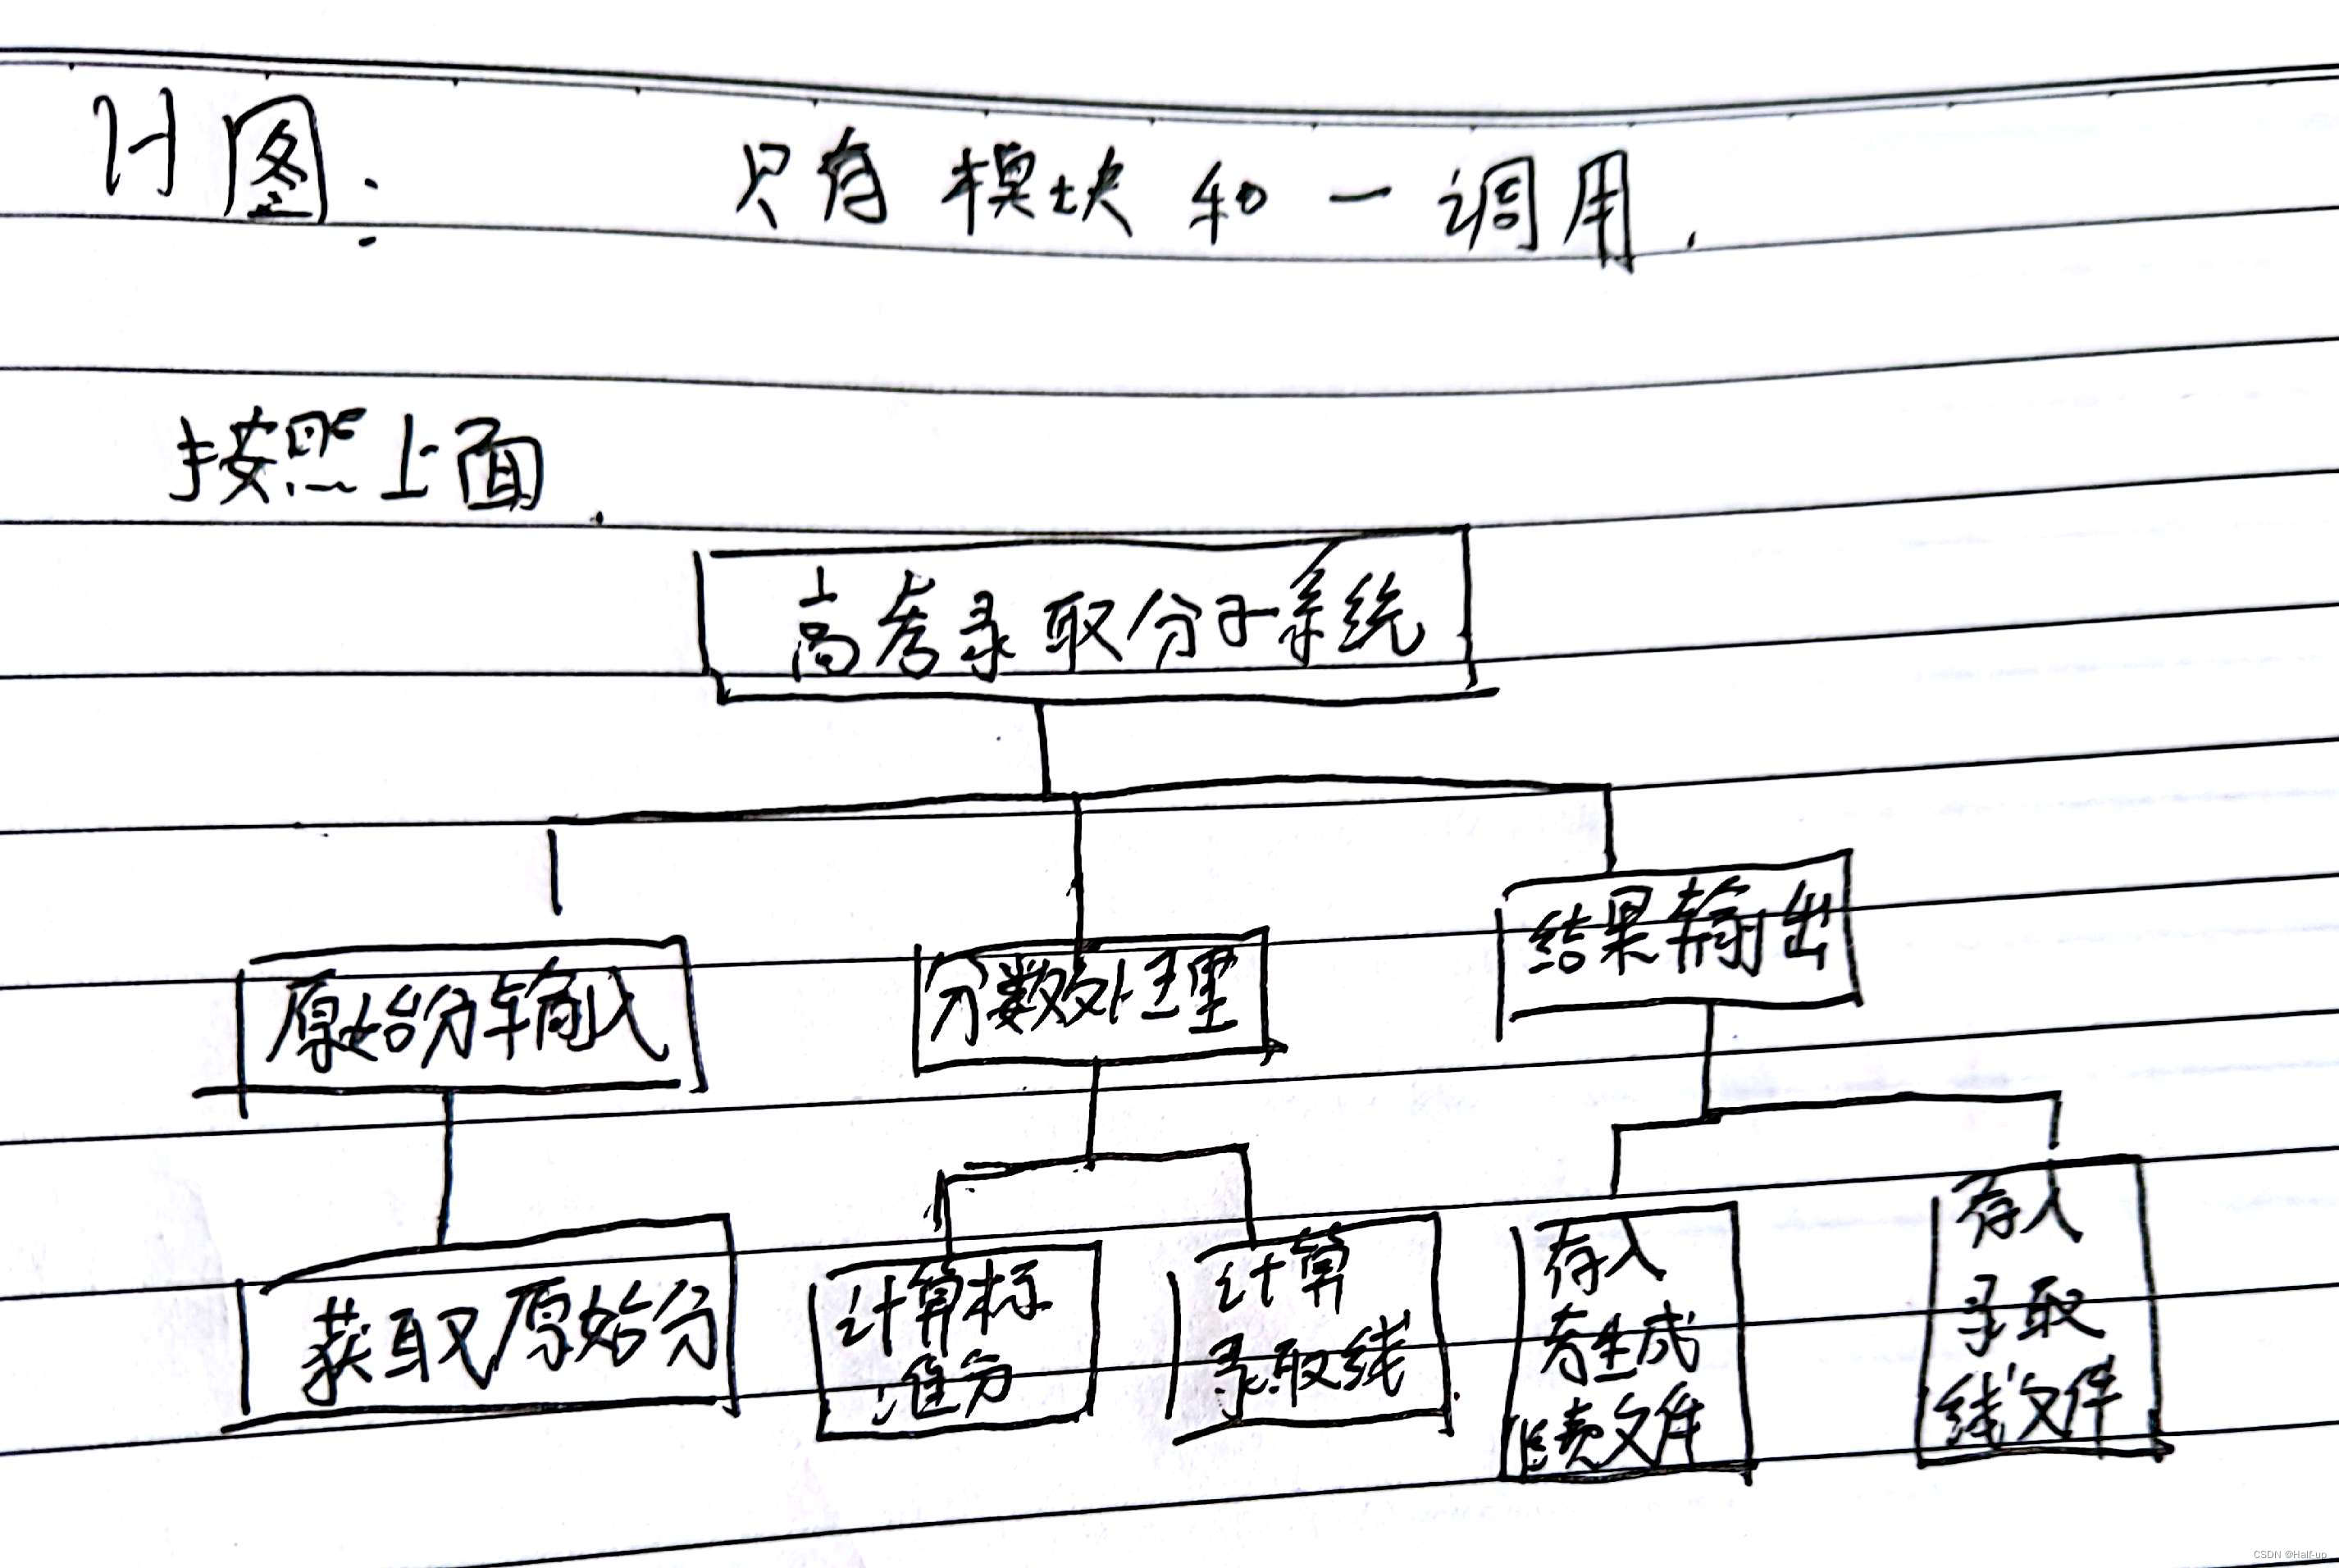 H图： 只有模块和一调用.
按照上面.
高考录取分子系统
原始分输入
分数处理
结果输出
获取原始分
计算标
准分
计算
录取线
存入
考生成
绩文件
存入
录取
线文件
CSDN @Half-up